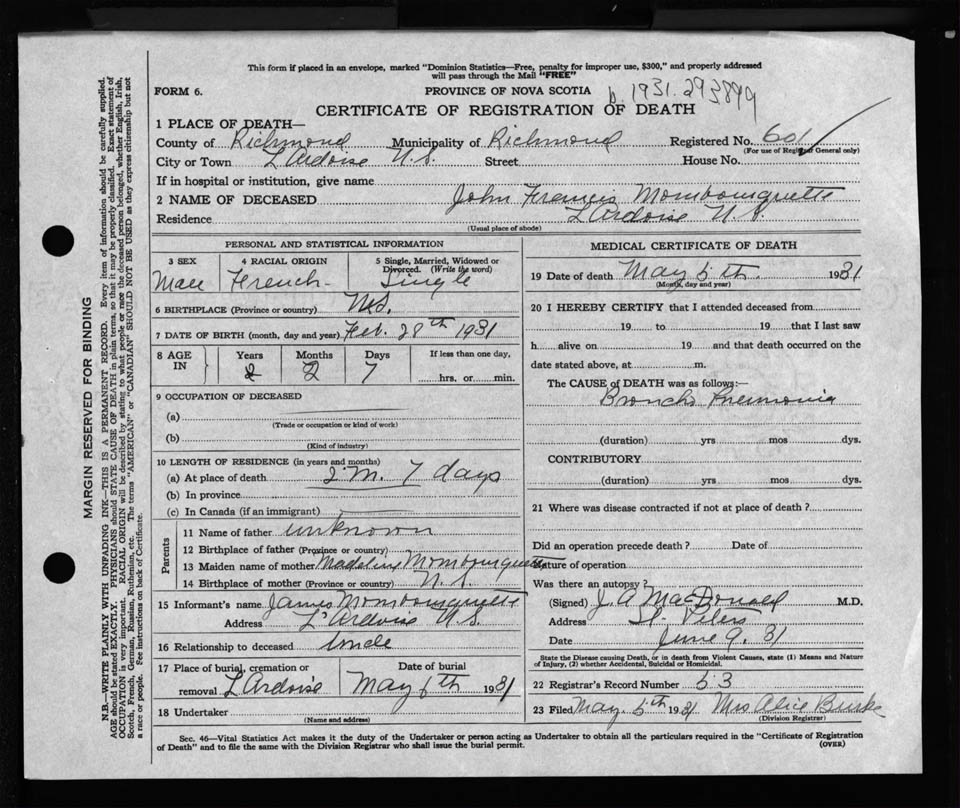 This form if placed in an envelope, marked "Dominion Statistics—Free, penalty for improper use, $300," and properly addressed
will pass through the Mail "FREE"
FORM 6.
PROVINCE OF NOVA SCOTIA
1931.293899
CERTIFICATE OF REGISTRATION OF DEATH
1 PLACE OF DEATH—
County of Richmond Municipality of Richmond Registered No. 601
(For use of Registrar General only)
City or Town L'Ardoise N.S. Street House No.
If in hospital or institution, give name
2 NAME OF DECEASED John Francis Mombourquette
Residence L'Ardoise N.S.
(Usual place of abode)
PERSONAL AND STATISTICAL INFORMATION
3 SEX 4 RACIAL ORIGIN 5 Single, Married, Widowed or
Divorced. (Write the word)
Male French Single
6 BIRTHPLACE (Province or country) N.S.
7 DATE OF BIRTH (month, day and year) Feb. 28th 1931
8 AGE IN Years Months Days If less than one day,
2 7 hrs. or min.
9 OCCUPATION OF DECEASED
(a)
(Trade or occupation or kind of work)
(b)
(Kind of industry)
10 LENGTH OF RESIDENCE (in years and months)
(a) At place of death 2 M. 7 days
(b) In province
(c) In Canada (if an immigrant)
Parents
11 Name of father unknown
12 Birthplace of father (Province or country)
13 Maiden name of mother Madeline Mombourquette
14 Birthplace of mother (Province or country) N.S.
15 Informant's name James Mombourquette
Address L'Ardoise N.S.
16 Relationship to deceased Uncle
17 Place of burial, cremation or Date of burial
removal L'Ardoise May 6th 1931
18 Undertaker
(Name and address)
MEDICAL CERTIFICATE OF DEATH
19 Date of death May 5th. 1931
(Month, day and year)
20 I HEREBY CERTIFY that I attended deceased from
19 to 19 that I last saw
h alive on 19 and that death occurred on the
date stated above, at m.
The CAUSE of DEATH was as follows:—
Broncho Pneumonia
(duration) yrs mos dys.
CONTRIBUTORY
(duration) yrs. mos dys.
21 Where was disease contracted if not at place of death?
Did an operation precede death? Date of
Nature of operation
Was there an autopsy?
(Signed) J. A MacDonald M.D.
Address St. Peters
Date June 9. 31
State the Disease causing Death, or in death from Violent Causes, state (1) Means and Nature
of Injury, (2) whether Accidental, Suicidal or Homicidal.
22 Registrar's Record Number 53
23 Filed May. 5th 1931 Mrs Alice Burke
(Division Registrar)
Sec. 46—Vital Statistics Act makes it the duty of the Undertaker or person acting as Undertaker to obtain all the particulars required in the "Certificate of Registration
of Death" and to file the same with the Division Registrar who shall issue the burial permit.
(OVER)
MARGIN RESERVED FOR BINDING
N.B.—WRITE PLAINLY WITH UNFADING INK—THIS IS A PERMANENT RECORD. Every item of information should be carefully supplied.
AGE should be stated EXACTLY. PHYSICIANS should STATE CAUSE OF DEATH in plain terms, so that it may be properly classified. Exact statement of
OCCUPATION is very important. RACIAL ORIGIN will be described by stating to what people or race the deceased person belonged, whether English, Irish,
Scotch, French, German, Russian, Ruthenian, etc. The terms "AMERICAN" or "CANADIAN" SHOULD NOT BE USED as they express citizenship but not
a race or people. See instructions on back of Certificate.